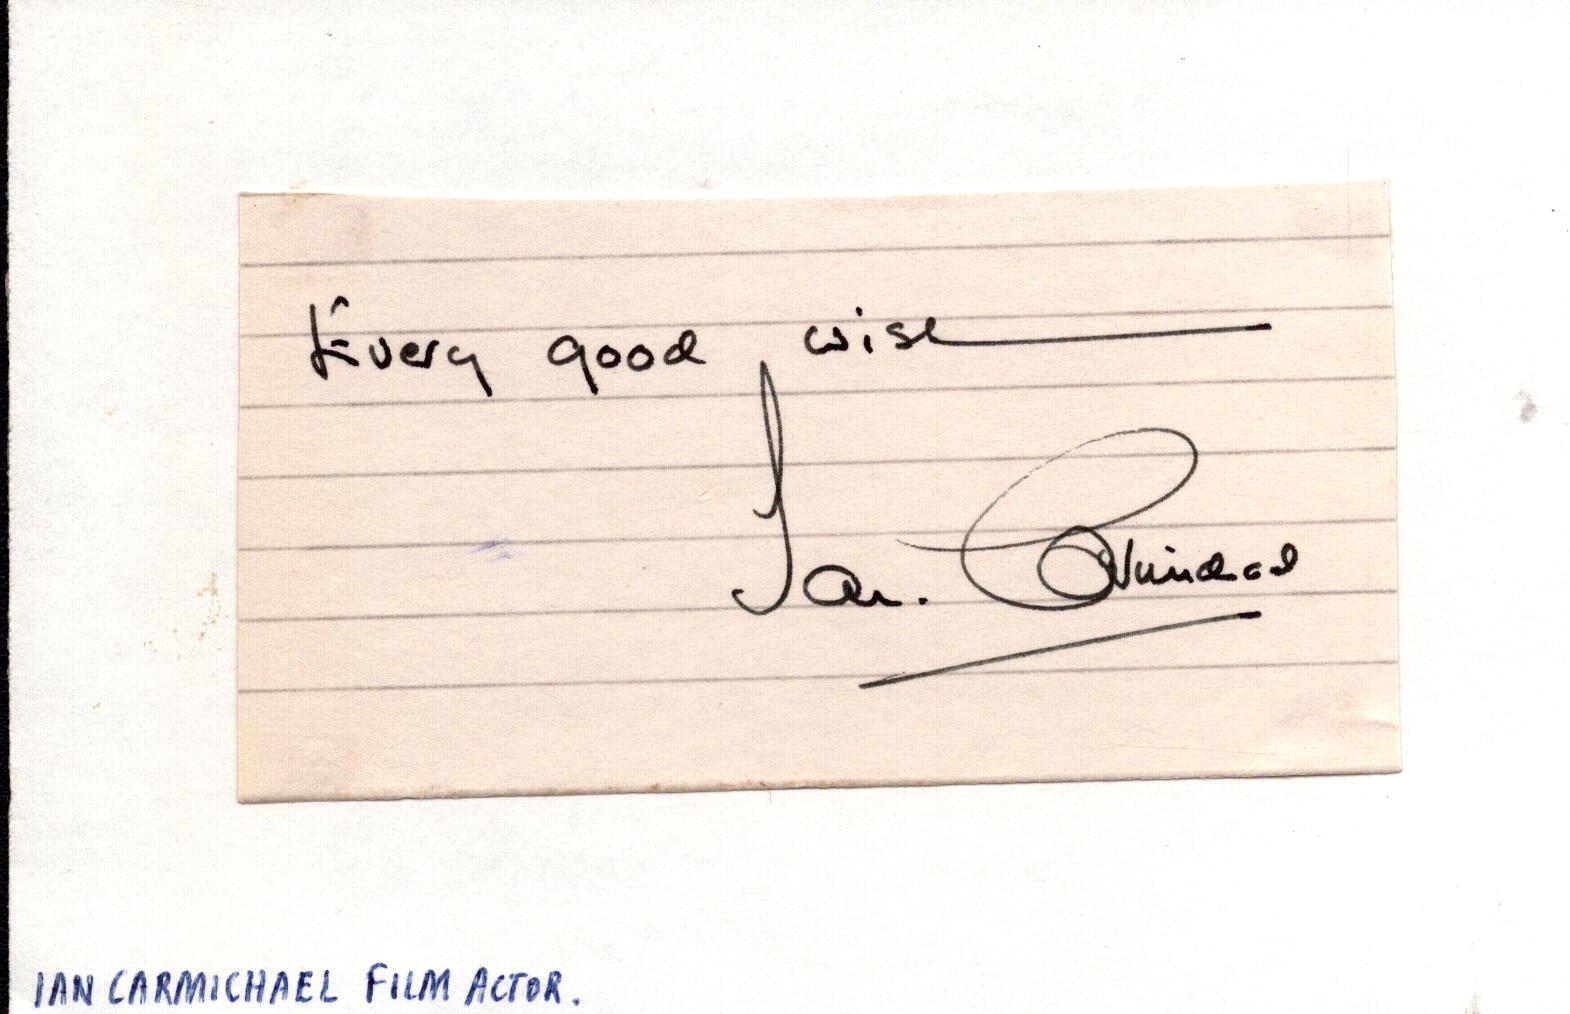 Every good wish
Ian Carmichael
IAN CARMICHAEL FILM ACTOR.